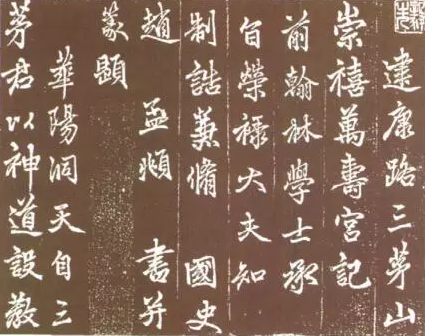 建康路三茅山
崇禧萬壽宮記
前翰林學士承
旨榮祿大夫知
制誥兼脩 國史
趙 孟頫 書并
篆題
華陽洞天自三
茅君以神道設教